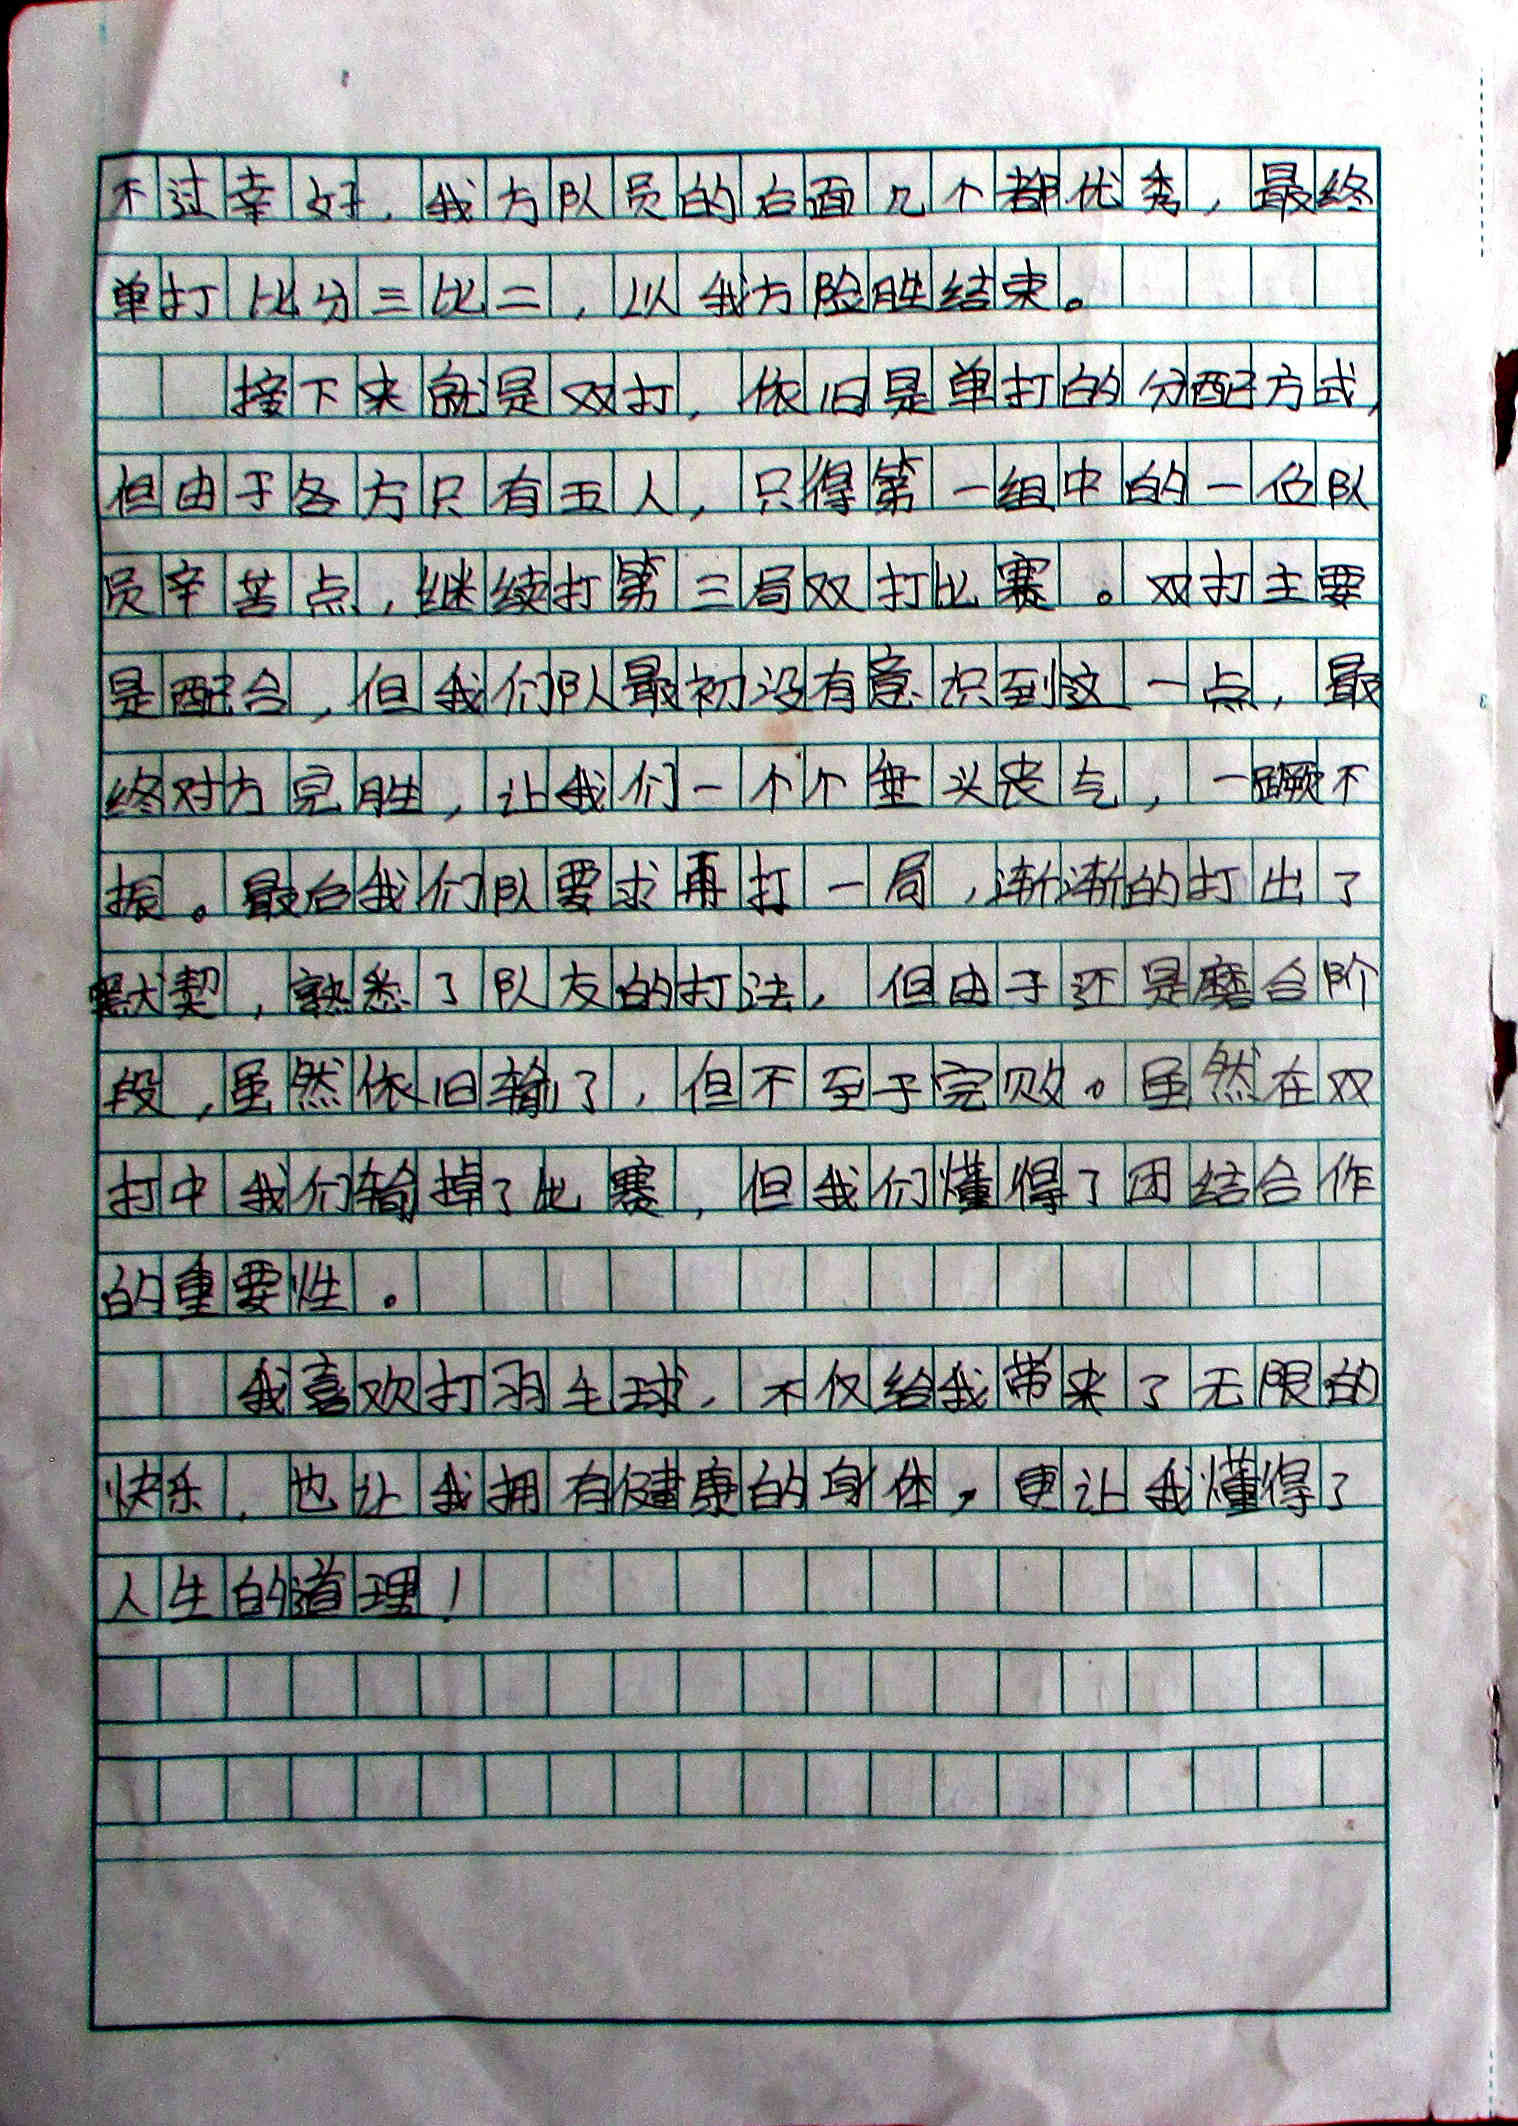 不过幸好,我方队员的后面几个都优秀,最终
单打比分三比二,以我方险胜结束。
接下来就是双打,依旧是单打的分配方式,
但由于各方只有五人,只得第一组中的一位队
员辛苦点,继续打第三局双打比赛。双打主要
是配合,但我们队最初没有意识到这一点,最
终对方完胜,让我们一个个垂头丧气,一蹶不
振。最后我们队要求再打一局,渐渐的打出了
默契,熟悉了队友的打法,但由于还是磨合阶
段,虽然依旧输了,但不至于完败。虽然在双
打中我们输掉了比赛,但我们懂得了团结合作
的重要性。
我喜欢打羽毛球,不仅给我带来了无限的
快乐,也让我拥有健康的身体,更让我懂得了
人生的道理!